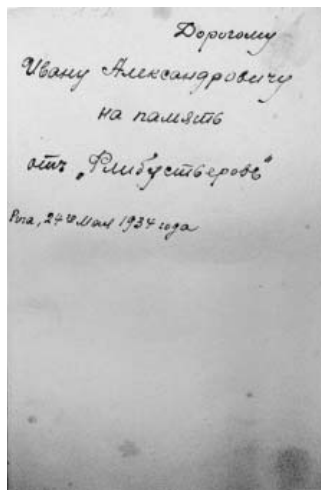 Дорогому
Ивану Александровичу
на память
отъ „Флибустьеровъ"
Рига, 24го Мая 1934 года